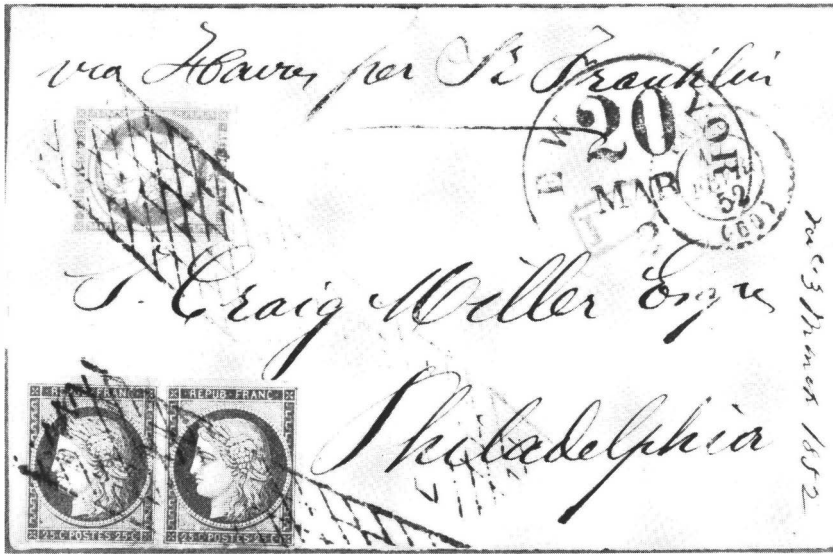 via Havre per St Franklin
NEW YOR
20
MAR
52
(60)
J. Craig Miller Esqre
Philadelphia
March 1852
REPUB. FRANC.
25 C POSTES 25 C
REPUB. FRANC.
25 C POSTES 25 C